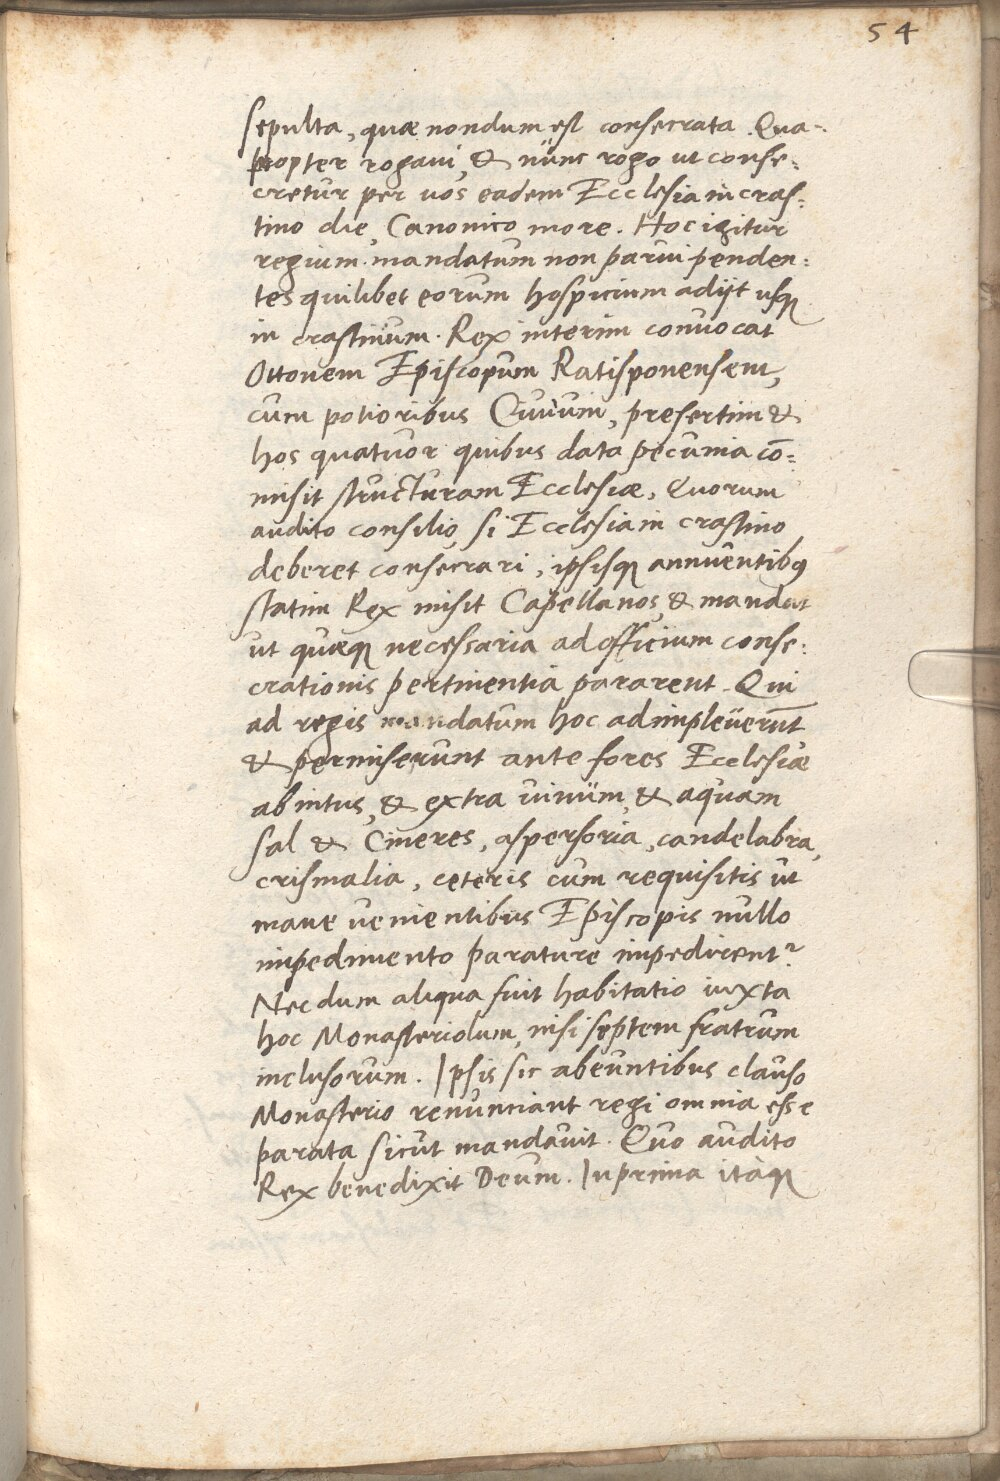 54
sepulta, quæ nondum est consecrata. Qua-
propter rogaui, & nunc rogo ut conse:
cretur per uos eadem Ecclesia in cras:
tino die, Canonico more. Hoc igitur
regium mandatum non parui penden:
tes quilibet eorum hospicium adijt usq
in crastinum. Rex interim conuocat
Ottonem Episcopum Ratisponensem,
cum potioribus Ciuium, presertim &
hos quatuor quibus data pecunia cō:
misit structuram Ecclesiæ, Quorum
audito consilio, si Ecclesia in crastino
deberet consecrari, ipsisq annuentibus
statim Rex misit Capellanos, & mandat
ut quæq necessaria ad officium conse:
crationis pertinentia pararent. Qui
ad regis mandatum hoc adimpleuerunt
& permiserunt ante fores Ecclesiæ
ab intus, & extra uinum, & aquam
sal & Cineres, aspersoria, candelabra,
crismalia, ceteris cum requisitis ut
mane uenientibus Episcopis nullo
impedimento parature impedirent?
Nec dum aliqua fuit habitatio iuxta
hoc Monasteriolum, nisi septem fratrum
inclusorum. Ipsis sic abeuntibus clauso
Monasterio renunciant regi omnia esse
parata sicut mandauit. Quo audito
Rex benedixit Deum. In prima itaq